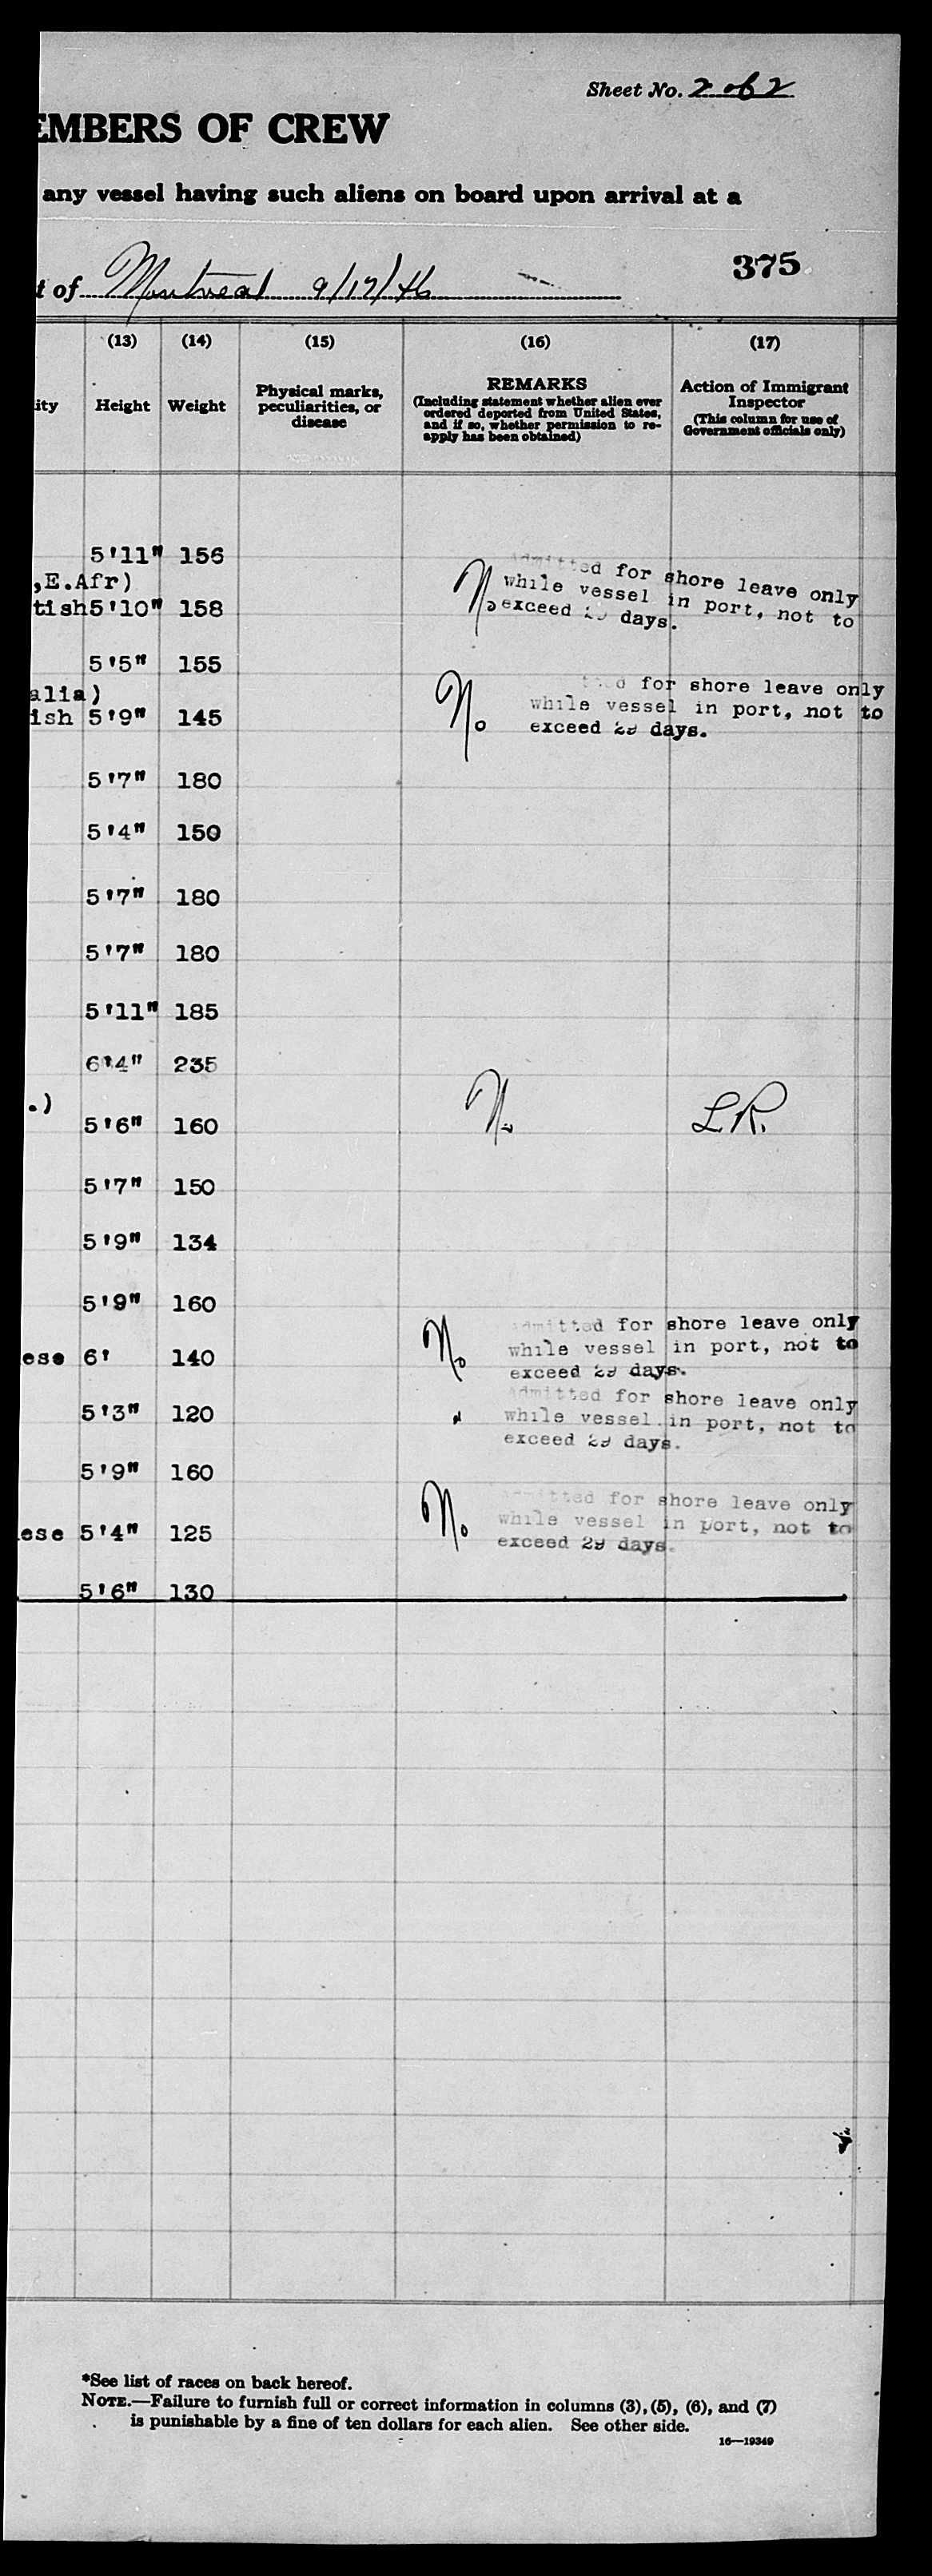 Sheet No. 2 of 2
EMBERS OF CREW
any vessel having such aliens on board upon arrival at a
t of Montreal 9/17/46
375
(13) (14) (15) (16) (17)
ity Height Weight Physical marks, peculiarities, or disease
REMARKS
(Including statement whether alien ever
ordered deported from United States,
and if so, whether permission to re-
apply has been obtained)
Action of Immigrant
Inspector
(This column for use of
Government officials only)
5'11" 156
,E.Afr)
tish 5'10" 158
No
Admitted for shore leave only
while vessel in port, not to
exceed 29 days.
5'5" 155
alia)
ish 5'9" 145
No
for shore leave only
while vessel in port, not to
exceed 29 days.
5'7" 180
5'4" 150
5'7" 180
5'7" 180
5'11" 185
6'4" 235
.)
5'6" 160 No L.R.
5'7" 150
5'9" 134
5'9" 160
ese 6' 140
No
Admitted for shore leave only
while vessel in port, not to
exceed 29 days.
5'3" 120
"
Admitted for shore leave only
while vessel in port, not to
exceed 29 days.
5'9" 160
ese 5'4" 125
No
Admitted for shore leave only
while vessel in port, not to
exceed 29 days.
5'6" 130
*See list of races on back hereof.
NOTE.—Failure to furnish full or correct information in columns (3), (5), (6), and (7)
is punishable by a fine of ten dollars for each alien. See other side.
16—19349